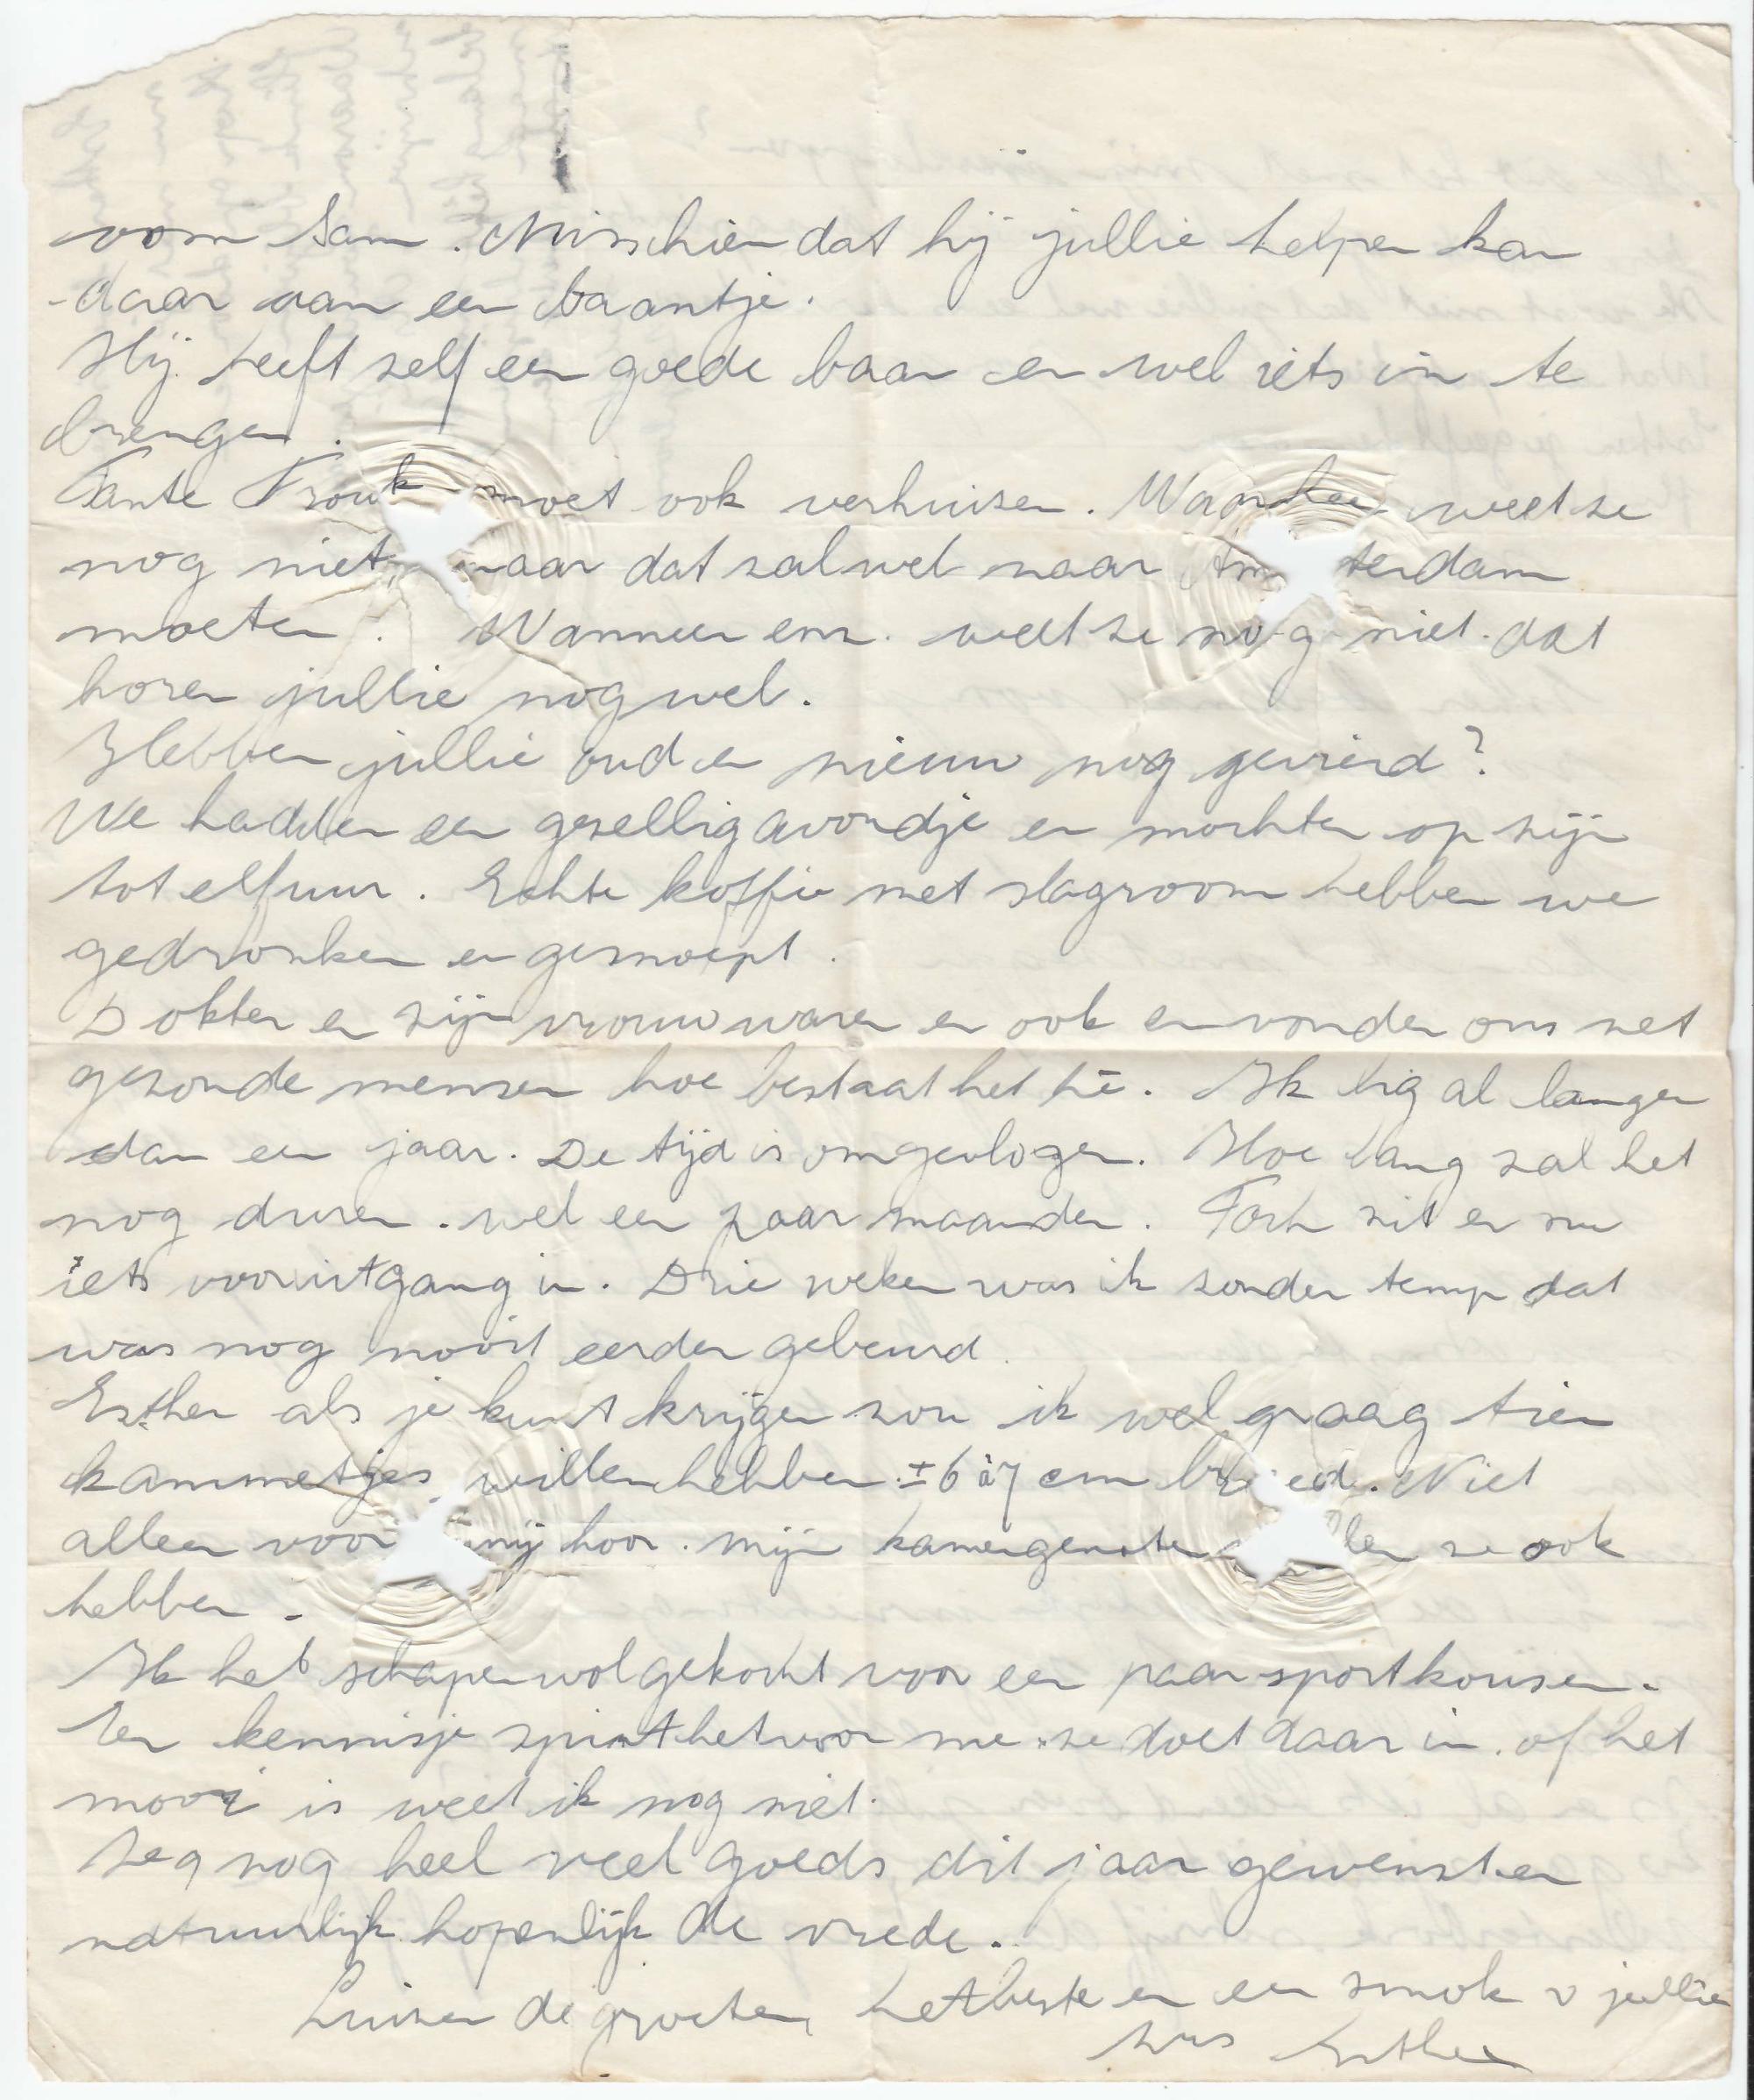 oom Sam. Misschien dat hij jullie helpen kan
daar aan een baantje.
Hij heeft self een goede baan en wel iets in te
brengen.
Tante Frouk moet ook verhuizen. Waarheen weet ze
nog niet maar dat zal wel naar Am terdam
moeten. Wanneer enz. weet ze nog niet. dat
horen jullie nog wel.
Hebben jullie oud en nieuw nog gevierd?
We hadden een gezellig avondje en mochten op zijn
tot elf uur. Echte koffie met slagroom hebben we
gedronken en gesnoept.
Dokter en zijn vrouw waren er ook en vonden ons net
gezonde mensen hoe bestaat het hè. Ik lig al langer
dan een jaar. De tijd is omgevlogen. Hoe lang zal het
nog duren. wel een paar maanden. Toch zit er nu
iets vooruitgang in. Drie weken was ik zonder temp dat
was nog nooit eerder gebeurd.
Esther als je kunt krijgen zou ik wel graag tien
kammetjes willen hebben. ± 6 à 7 cm breed. Niet
alleen voor mij hoor. mijn kamergenoten len ze ook
hebben.
Ik heb schapenwol gekocht voor een paar sportkousen.
Een kennisje spint het voor me. ze doet daar in. of het
mooi is weet ik nog niet.
Zeg nog heel veel goeds dit jaar gewenst en
natuurlijk hopenlijk de vrede.
Luizen de groeten, het beste en een smok v jullie
zus